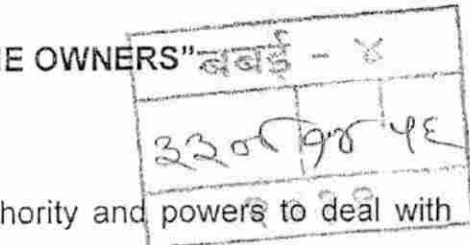 E OWNERS" बबई - ४
३३०८ १४ ५६
hority and powers to deal with